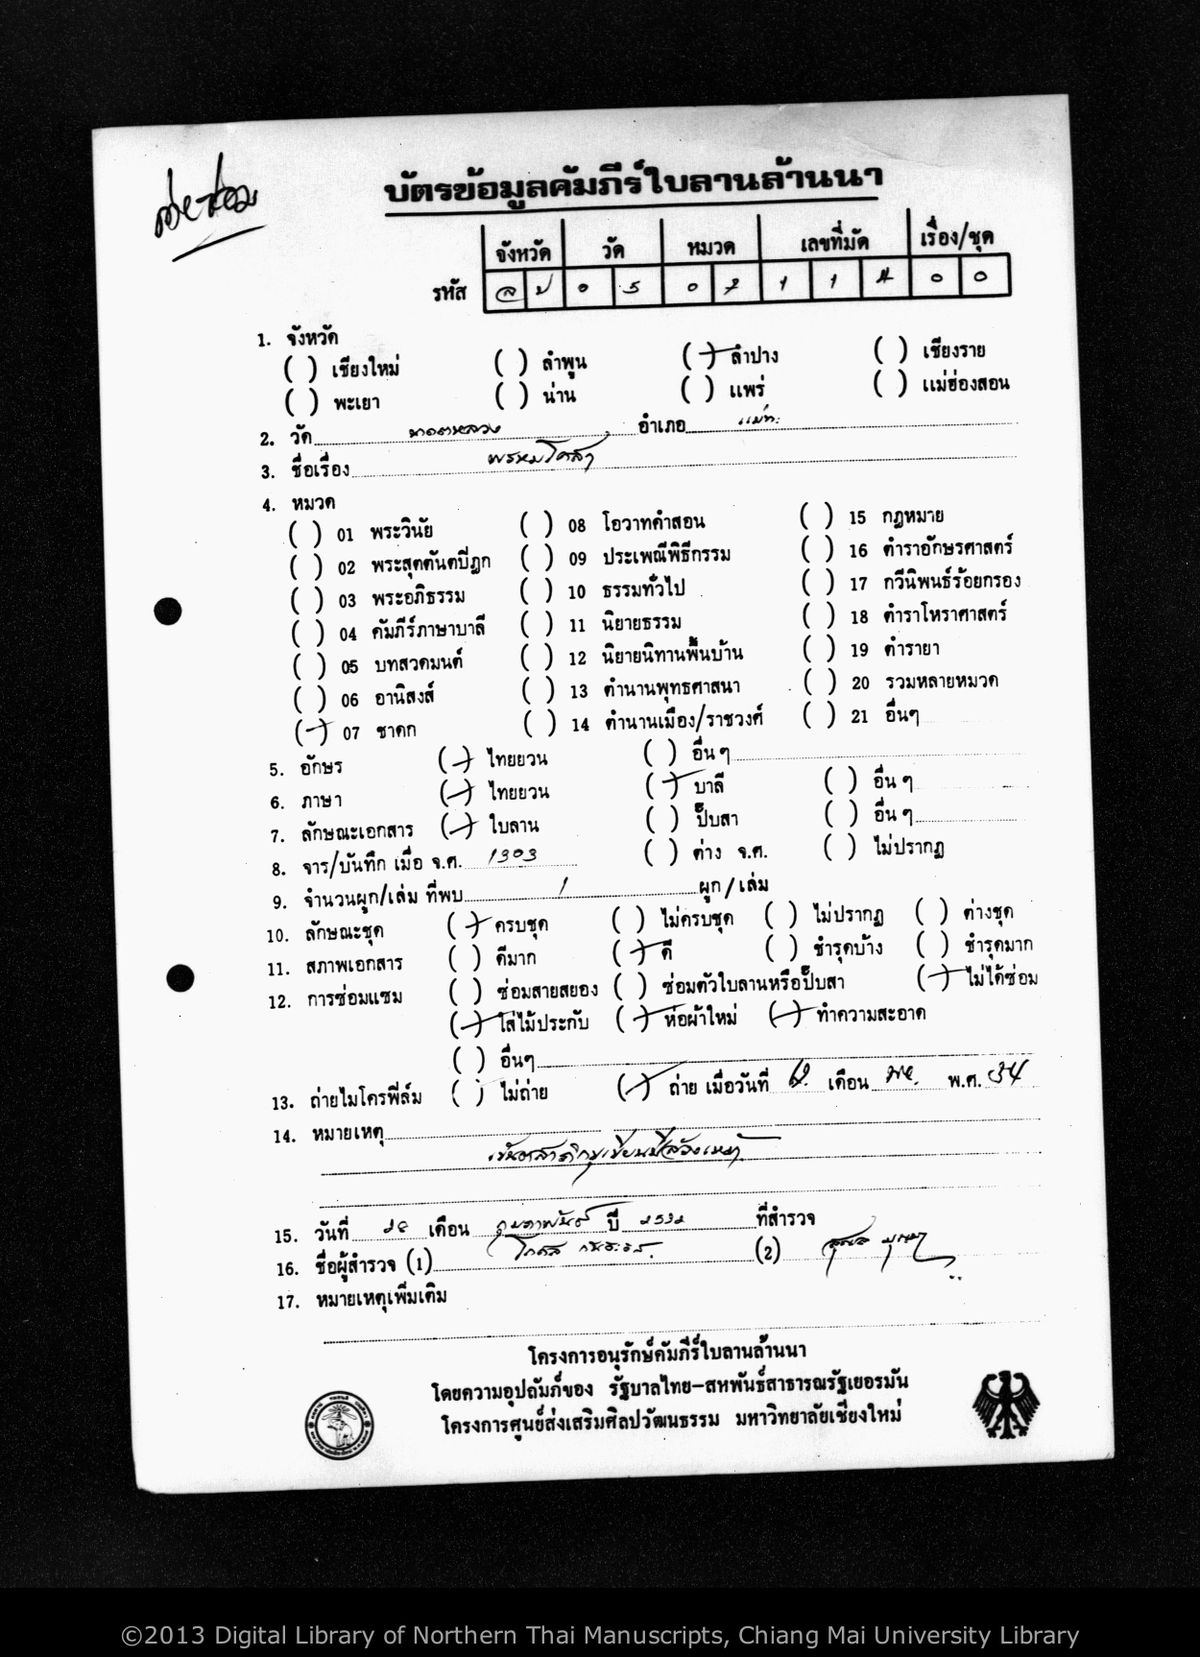 บัตรข้อมูลคัมภีร์ใบลานล้านนา
จังหวัด วัด หมวด เลขที่มัด เรื่อง/ชุด
รหัส ล ป ๐ 5 ๐ 7 1 1 4 ๐ ๐
1. จังหวัด
( ) เชียงใหม่ ( ) ลำพูน (/) ลำปาง ( ) เชียงราย
( ) พะเยา ( ) น่าน ( ) แพร่ ( ) แม่ฮ่องสอน
2. วัด กาดหลวง อำเภอ แม่ทะ
3. ชื่อเรื่อง
4. หมวด
( ) 01 พระวินัย ( ) 08 โอวาทคำสอน ( ) 15 กฎหมาย
( ) 02 พระสุตตันตปิฎก ( ) 09 ประเพณีพิธีกรรม ( ) 16 ตำราอักษรศาสตร์
( ) 03 พระอภิธรรม ( ) 10 ธรรมทั่วไป ( ) 17 กวีนิพนธ์ร้อยกรอง
( ) 04 คัมภีร์ภาษาบาลี ( ) 11 นิยายธรรม ( ) 18 ตำราโหราศาสตร์
( ) 05 บทสวดมนต์ ( ) 12 นิยายนิทานพื้นบ้าน ( ) 19 ตำรายา
( ) 06 อานิสงส์ ( ) 13 ตำนานพุทธศาสนา ( ) 20 รวมหลายหมวด
(/) 07 ชาดก ( ) 14 ตำนานเมือง/ราชวงศ์ ( ) 21 อื่นๆ
5. อักษร (/) ไทยยวน ( ) อื่น ๆ
6. ภาษา (/) ไทยยวน (/) บาลี ( ) อื่น ๆ
7. ลักษณะเอกสาร (/) ใบลาน ( ) ปั๊บสา ( ) อื่น ๆ
8. จาร/บันทึก เมื่อ จ.ศ. 1303 ( ) ต่าง จ.ศ. ( ) ไม่ปรากฏ
9. จำนวนผูก/เล่ม ที่พบ 1 ผูก/เล่ม
10. ลักษณะชุด (/) ครบชุด ( ) ไม่ครบชุด ( ) ไม่ปรากฏ ( ) ต่างชุด
11. สภาพเอกสาร ( ) ดีมาก (/) ดี ( ) ชำรุดบ้าง ( ) ชำรุดมาก
12. การซ่อมแซม ( ) ซ่อมสายสยอง ( ) ซ่อมตัวใบลานหรือปั๊บสา (/) ไม่ได้ซ่อม
(/) ใส่ไม้ประกับ (/) ห่อผ้าใหม่ (/) ทำความสะอาด
( ) อื่นๆ
13. ถ่ายไมโครฟิล์ม ( ) ไม่ถ่าย (/) ถ่าย เมื่อวันที่ เดือน พย. พ.ศ. 34
14. หมายเหตุ
15. วันที่ 28 เดือน กุมภาพันธ์ ปี 2532 ที่สำรวจ
16. ชื่อผู้สำรวจ (1) (2)
17. หมายเหตุเพิ่มเติม
โครงการอนุรักษ์คัมภีร์ใบลานล้านนา
โดยความอุปถัมภ์ของ รัฐบาลไทย-สหพันธ์สาธารณรัฐเยอรมัน
โครงการศูนย์ส่งเสริมศิลปวัฒนธรรม มหาวิทยาลัยเชียงใหม่
©2013 Digital Library of Northern Thai Manuscripts, Chiang Mai University Library